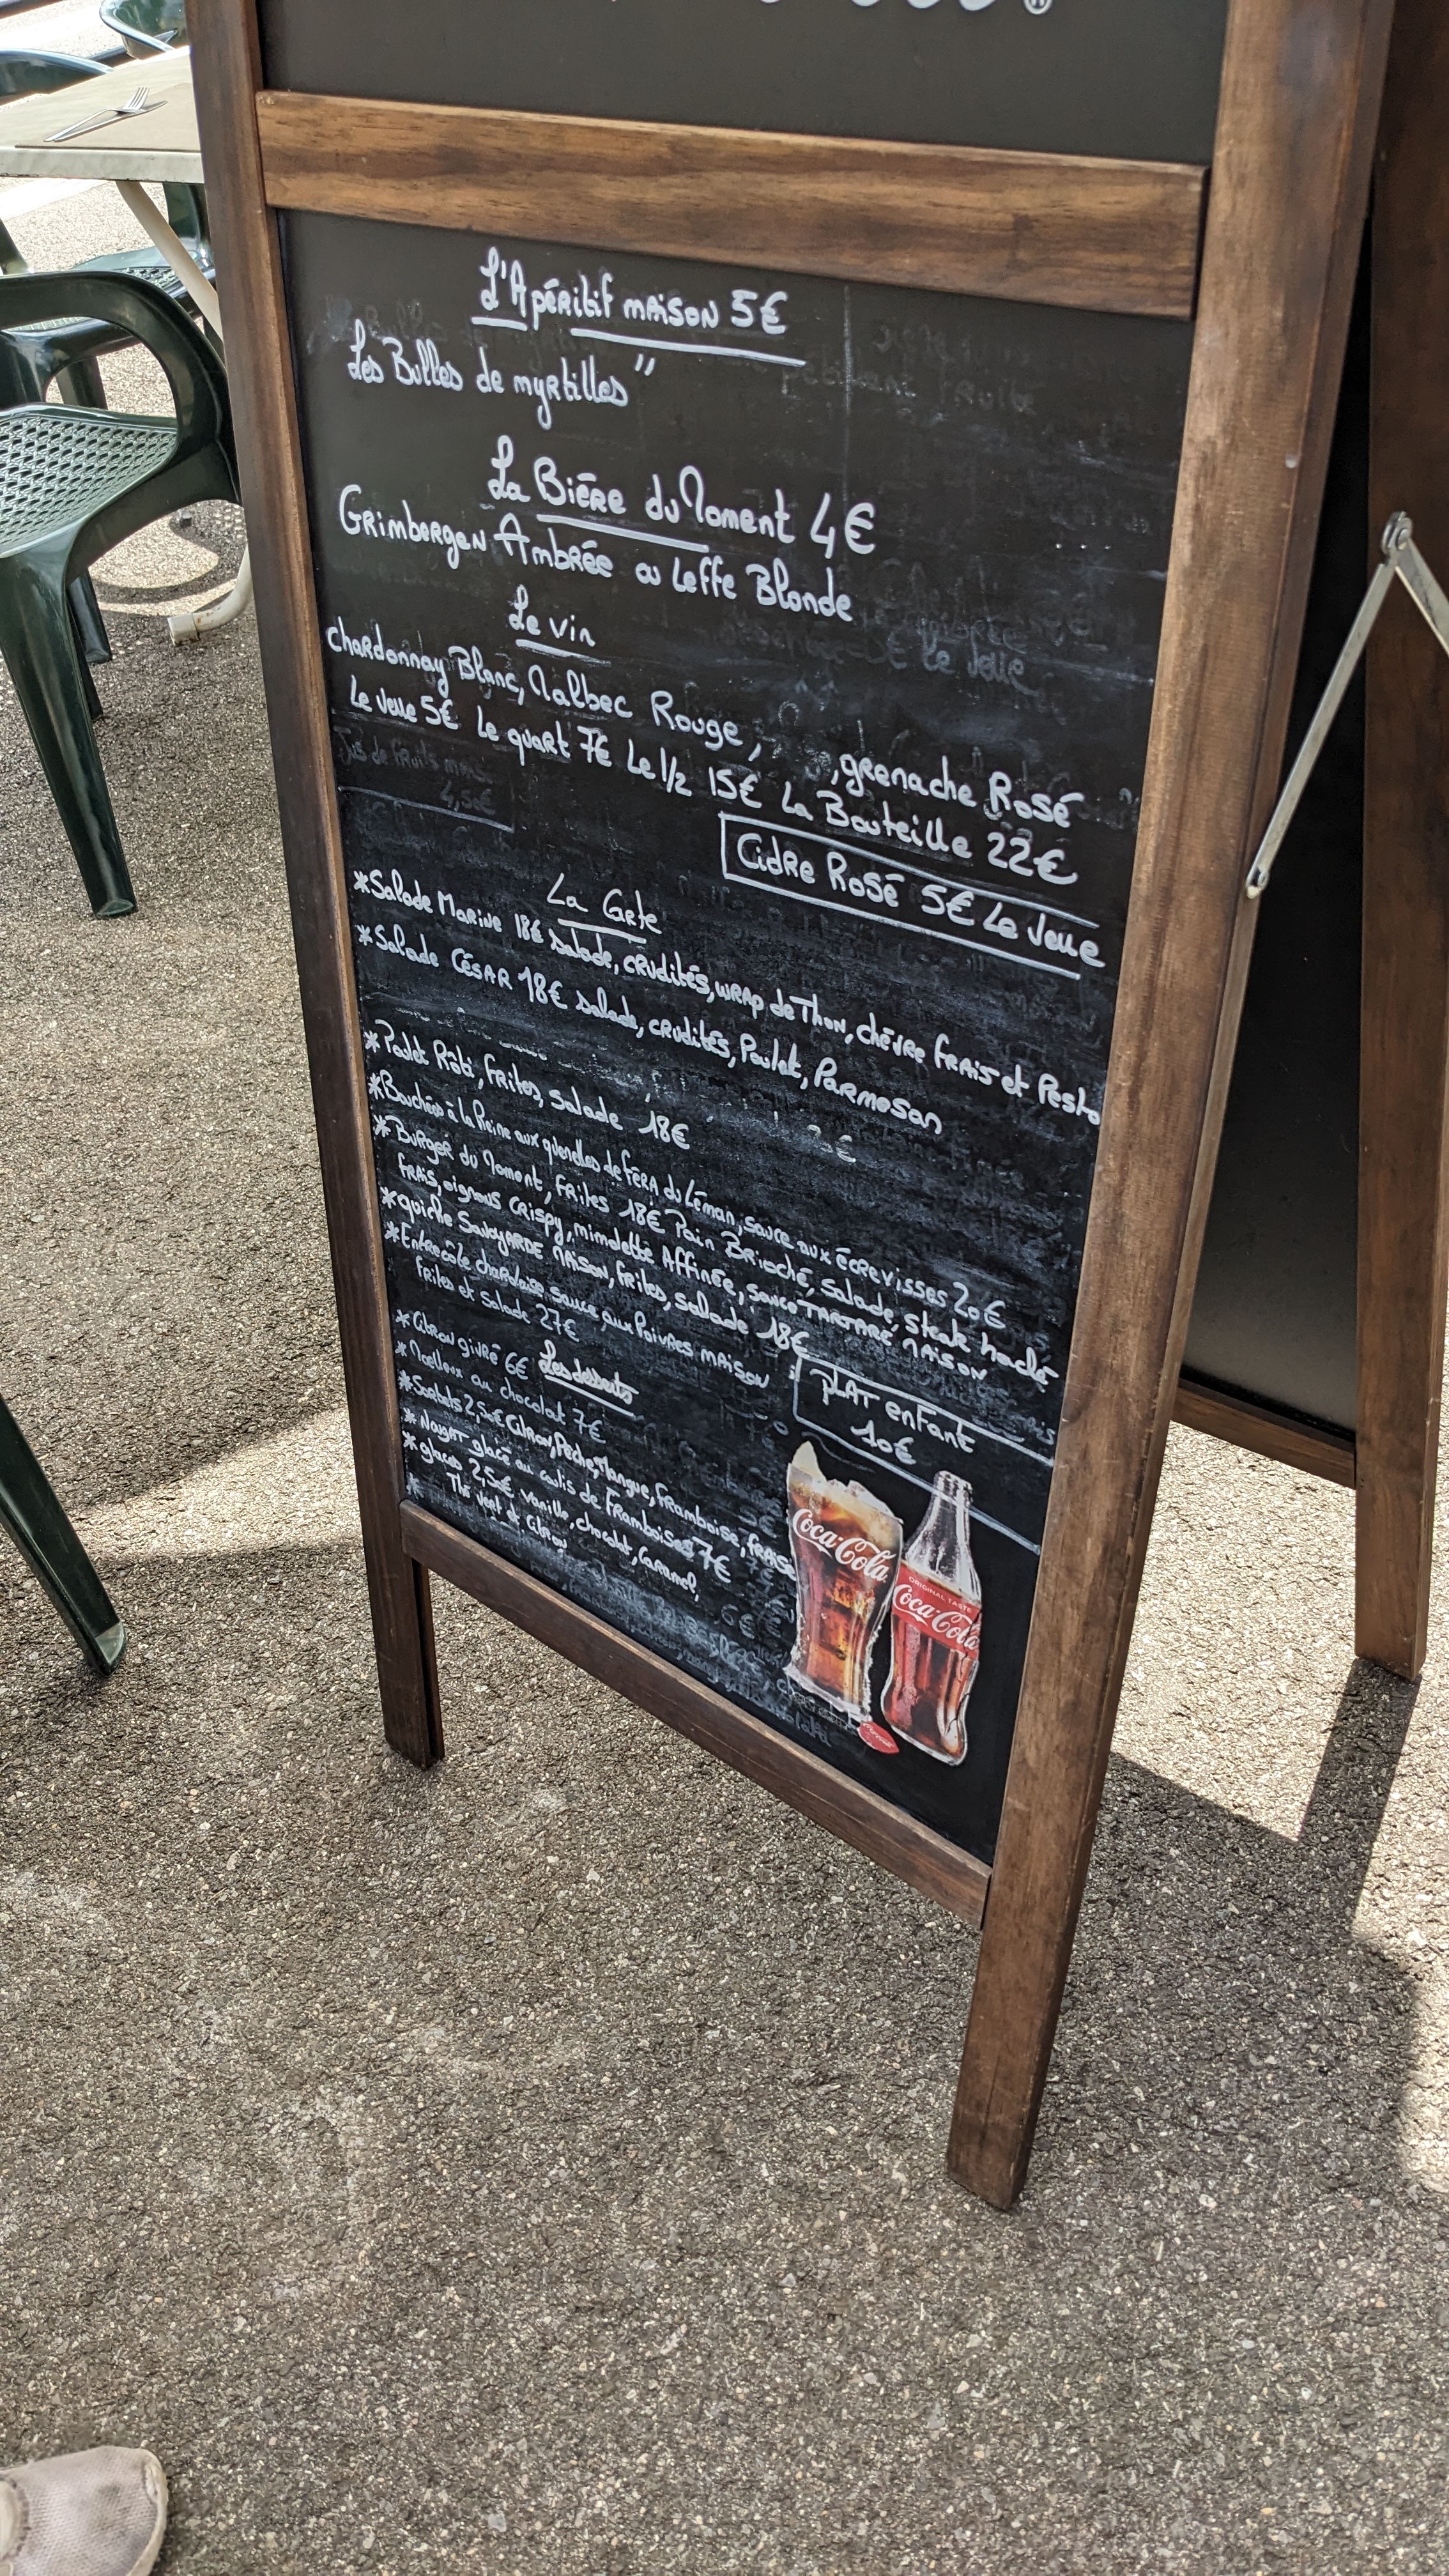 L'Apéritif maison 5€
Les Bulles de myrtilles"
La Bière du Moment 4€
Grimbergen Ambrée ou Leffe Blonde
Le vin
chardonnay Blanc, Malbec Rouge, , grenache Rosé
Le Verre 5€ Le quart 7€ Le 1/2 15€ La Bouteille 22€
Jus de fruits
4,50€
Cidre Rosé 5€ Le Verre
La Carte
*Salade Marine 18€ salade, crudités, wrap de Thon, chèvre frais et Pesto
*Salade César 18€ salade, crudités, Poulet, Parmesan
*Poulet Rôti, frites, salade 18€
*Bouchées à la Reine aux quenelles de féra du Léman, sauce aux écrevisses 20€
*Burger du Moment, frites 18€ Pain Brioché, salade, steak haché
frais, oignons crispy, mimolette Affinée, sauce TARTARE MAISON
*quiche Savoyarde Maison, frites, salade 18€
*Entrecôte charolaise sauce aux Poivres maison
frites et salade 27€
PLAT enfant
10€
Les desserts
*Citron givré 6€
*Moelleux au chocolat 7€
*Sorbets 2,50€ Citron, Pêche, Mangue, Framboise, fraise
*Nougat glacé au coulis de Framboises 7€
*glaces 2,50€ vanille, chocolat, Caramel,
Thé vert et citron
Coca-Cola
ORIGINAL TASTE
Coca-Cola